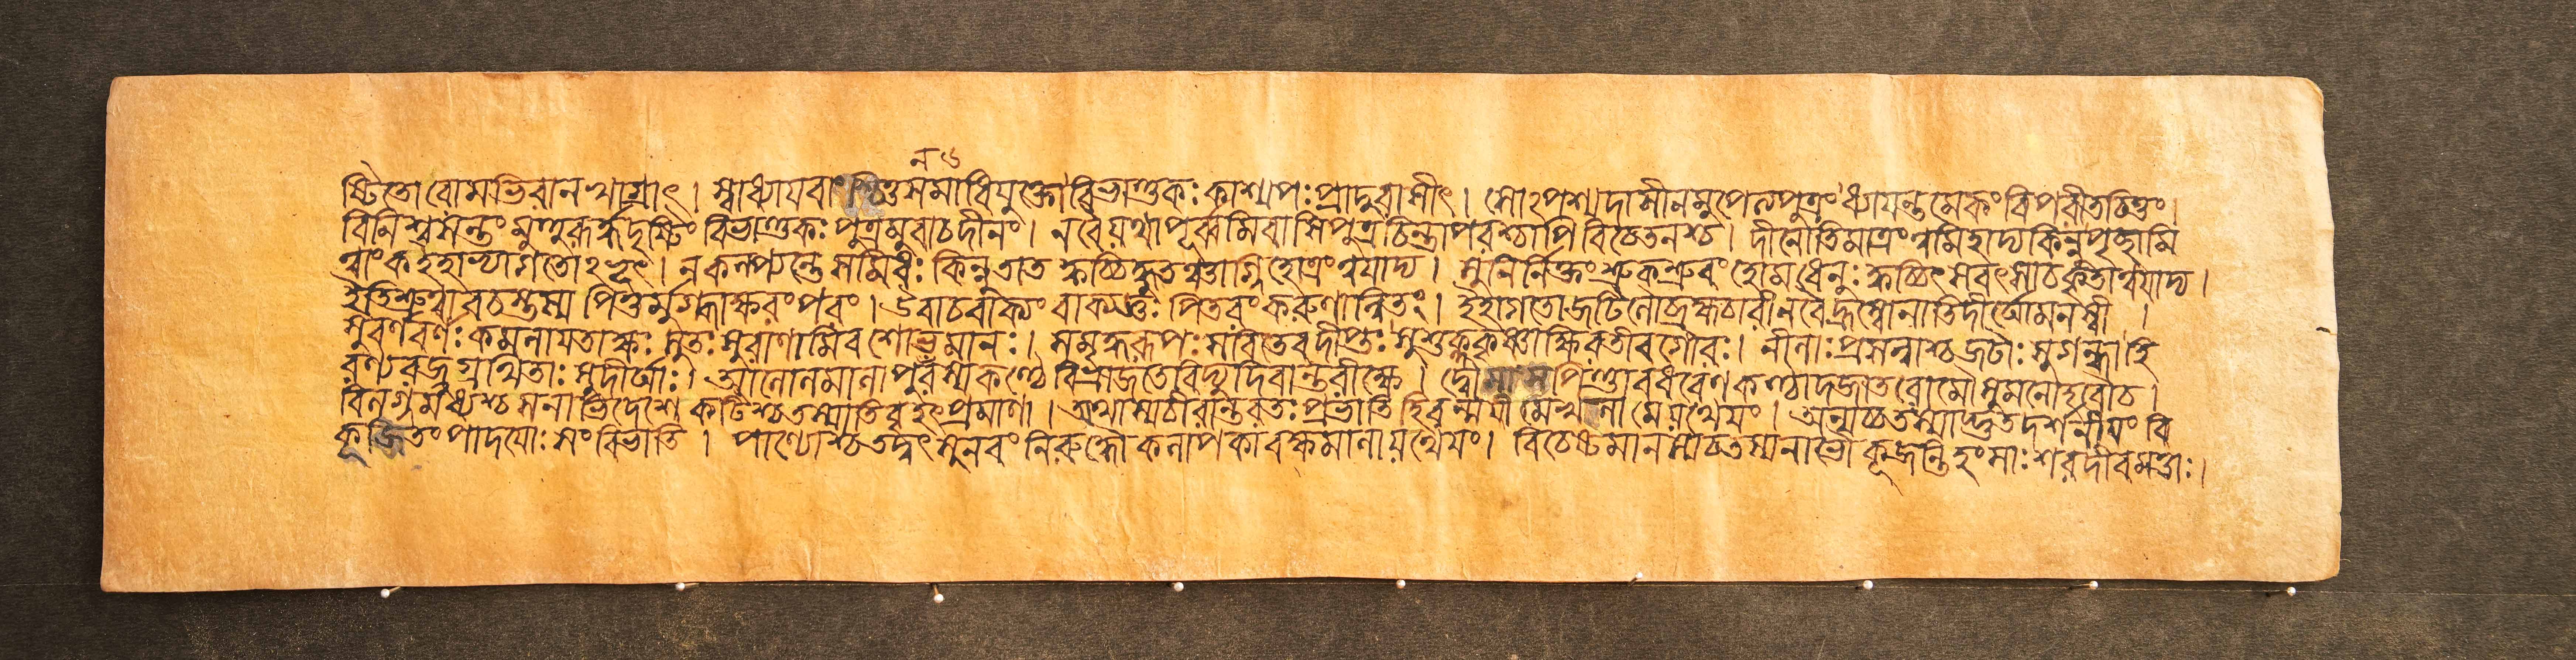 ন ৬
ষ্টিতো রোমভিরানখাগ্রাৎ । স্বাধ্যায়বাংশ্চিত্তসমাধিযুক্তো বিভাণ্ডকঃ কাশ্যপঃ প্রাদুরাসীৎ । সোঽপশ্যদাসীনমুপেত্য পুত্রং ধ্যায়ন্তমেকং বিপরীতচিত্তং ।
বিনিশ্বসন্তং মুহুরূর্দ্ধদৃষ্টিং বিভাণ্ডকঃ পুত্রমুবাচ দীনং । ন বৈ যথাপূর্ব্বমিবাসি পুত্র চিন্তাপরশ্চাপি বিচেতনশ্চ । দীনোতিমাত্রং ত্বমিহাদ্য কিন্নু পৃচ্ছামি
ত্বাং ক ইহাভ্যাগতোঽভূৎ । ন কল্প্যন্তে সমিধঃ কিন্নু তাত কচ্চিদ্ধুতঞ্চাগ্নিহোত্রং ত্বয়াদ্য । সুনির্নিক্তং স্রুকস্রুবং হোমধেনুঃ কচ্চিৎ সবৎসা চ কৃতা ত্বয়াদ্য ।
ইতি শ্রুত্বা বচস্তস্য পিতুর্মুগ্ধাক্ষরং পরং । উবাচ বাক্যং বাক্যজ্ঞঃ পিতরং করুণান্বিতং । ইহাগতো জটিলো ব্রহ্মচারী ন বৈ হ্রস্বো নাতিদীর্ঘো মনস্বী ।
সুবর্ণবর্ণঃ কমলায়তাক্ষঃ সুতঃ সুরাণামিব শোভমানঃ । সমৃদ্ধরূপঃ সবিতেব দীপ্তঃ সুশুক্লকৃষ্ণাক্ষিরতীব গৌরঃ । নীলাঃ প্রসন্নাশ্চ জটাঃ সুগন্ধা হি
রণ্যরজ্জুগ্রথিতাঃ সুদীর্ঘাঃ । আলোলমালা পুরস্য কণ্ঠে বিভ্রাজতে বিদ্যুদিবান্তরীক্ষে । দ্বৌ চাস্য পিণ্ডাবধরেণ কণ্ঠাদজাতরোমৌ সুমনোহরৌ চ ।
বিলগ্নমধ্যশ্চ সনাভিদেশে কটিশ্চ তস্যাতিবৃহৎপ্রমাণা । তথাস্য চীরান্তরতঃ প্রভাতি হিরন্ময়ী মেখলা মে যথেয়ং । অন্যচ্চ তস্যাদ্ভুতদর্শনীয়ং বি
কূজিতং পাদয়োঃ সংবিভাতি । পাণ্যোশ্চ তদ্বৎ নিরুক্তৌ কলাপকাবক্ষমালা যথেয়ং । বিচেষ্টমানস্য চ তস্য নাভৌ কূজন্তি হংসাঃ শরদীব মত্তাঃ ।